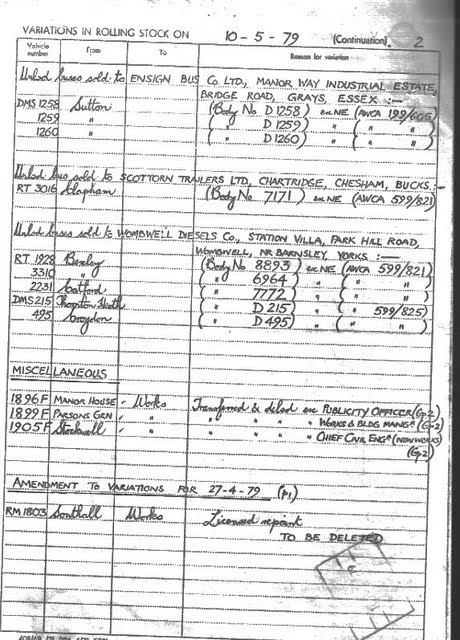 VARIATIONS IN ROLLING STOCK ON 10-5-79 (Continuation) 2
Vehicle number From To Reason for variation
Unlicd buses sold to ENSIGN BUS Co LTD, MANOR WAY INDUSTRIAL ESTATE,
BRIDGE ROAD, GRAYS, ESSEX :—
DMS 1258 Sutton (Body No D 1258) ex NE (AWCA 199/605)
1259 " ( " D 1259) " ( " " )
1260 " ( " D 1260) " ( " " )
Unlicd bus sold to SCOTTORN TRAILERS LTD, CHARTRIDGE, CHESHAM, BUCKS.:-
RT 3016 Clapham (Body No 7171) ex NE (AWCA 599/821)
Unlicd buses sold to WOMBWELL DIESELS Co., STATION VILLA, PARK HILL ROAD,
WOMBWELL, NR BARNSLEY, YORKS :—
RT 1928 Bexley (Body No 8893) ex NE (AWCA 599/821)
3310 " ( " 6964) " ( " " )
2231 Catford ( " 7772) " ( " " )
DMS 215 Thornton Heath ( " D 215) " ( " 599/825)
495 Croydon ( " D 495) " ( " " )
MISCELLANEOUS
1896F MANOR HOUSE Works Transferred & delicd one PUBLICITY OFFICER (Gp2)
1899F PARSONS GRN " " " " " WORKS & BLDG MANGR (Gp2)
1905F Stockwell " " " " " CHIEF CIVIL ENGR (NEW WORKS)
(Gp2)
AMENDMENT TO VARIATIONS FOR 27-4-79 (P1)
RM 1803 Southall Works Licensed repaint
TO BE DELETED